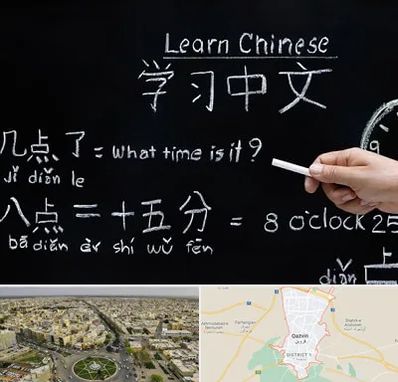 Learn Chinese
学习中文
几点了 = what time is it?
jǐ diǎn le
八点二十五分 = 8 o'clock 25
bā diǎn èr shí wǔ fēn
diǎn
上
9
Qazvin
قزوین
DISTRICT 1